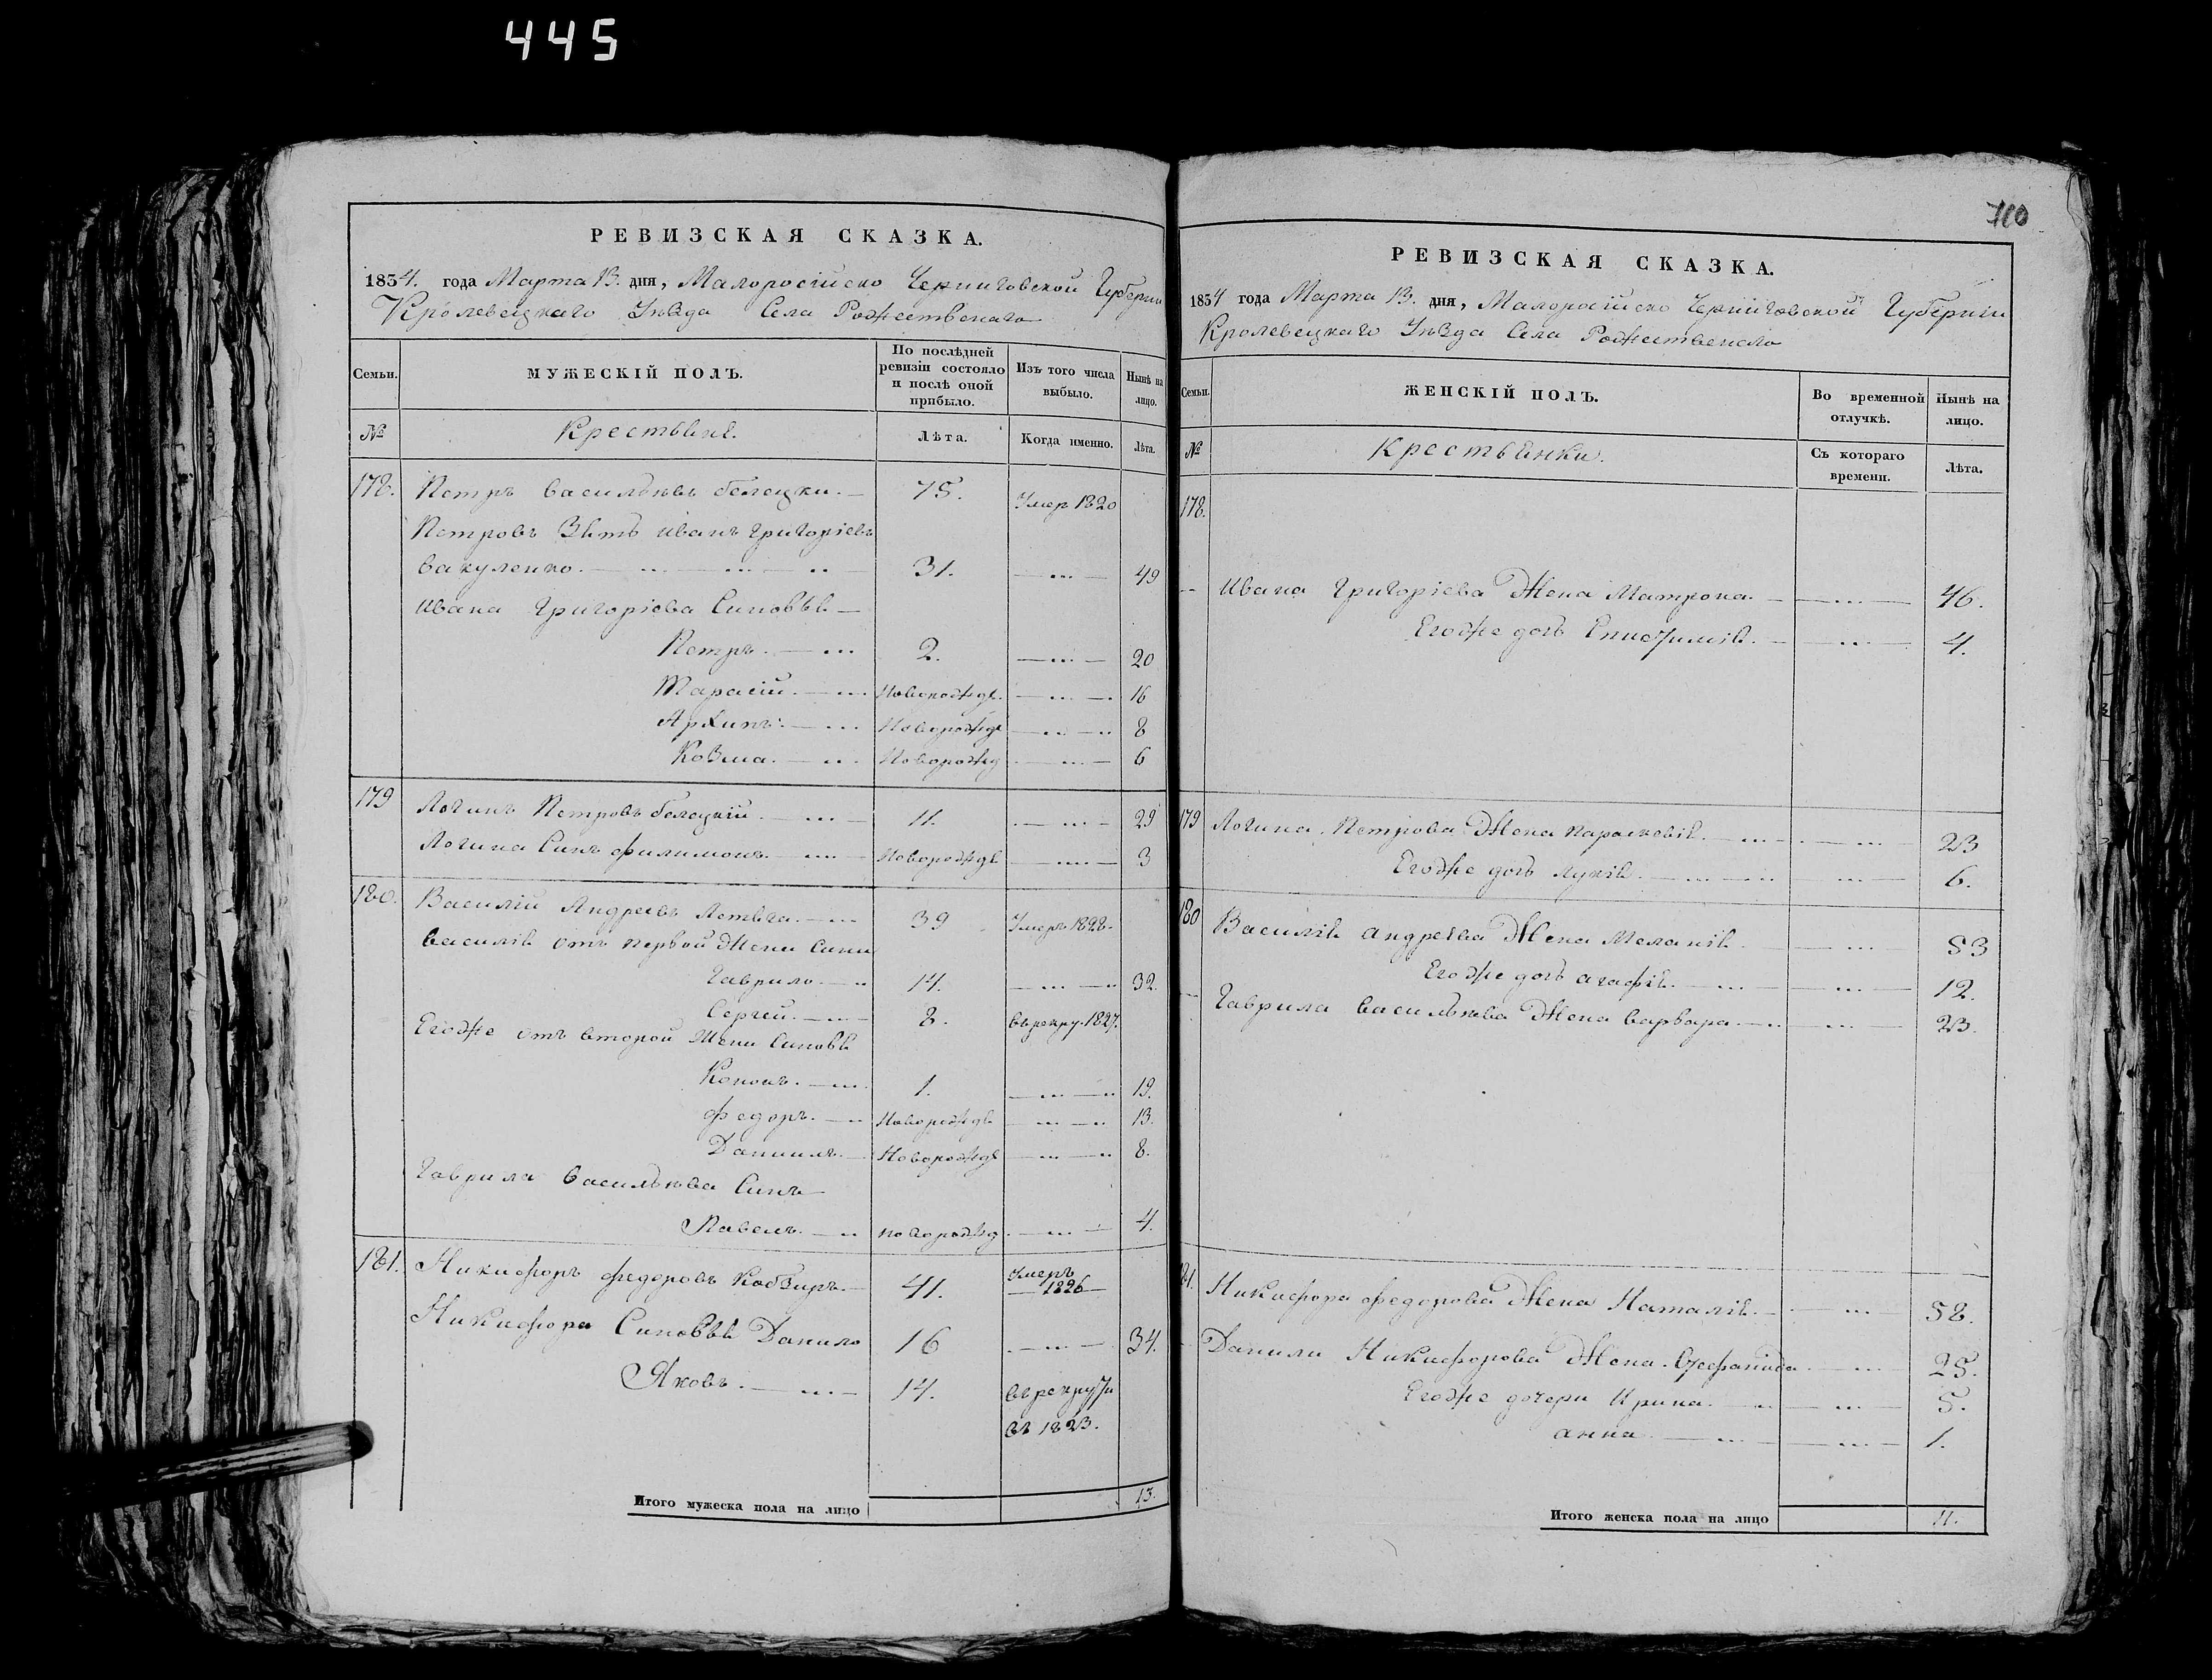 445
РЕВИЗСКАЯ СКАЗКА.
1834. года Марта 13. дня, Малоросійско Черниговской Губерніи
Кролевецкаго Уѣзда Села Рождественаго
Семьи.
МУЖЕСКІЙ ПОЛЪ.
По послѣдней ревизіи состояло и послѣ оной прибыло.
Изъ того числа выбыло.
Нынѣ на лицо.
№ Крестьяне. Лѣта. Когда именно. Лѣта.
178. Петръ Васильевъ белецки. 75. Умер 1820
Петровъ Зять иванъ григоріевъ
Вакуленко. 31. 49
ивана григоріева Синовья
Петръ. 2. 20
Тарасій. Новорожде. 16
Архипъ. Новорожде 8
Козма. Новорожд 6
179 Логинъ Петровъ белецкій. 11. 29
Логина Синъ филимонъ. Новорожде 3
180. Василій Андреевъ Летяга. 39 Умеръ 1828.
Василія отъ первой Жени Сини
Гаврило. 14. 32.
Сергей. 8. въ рекру. 1827.
Егоже отъ второй Жени Синовя
Кононъ. 1. 19.
федоръ. Новорожде 13.
Даниилъ. Новорожде 8.
Гаврила Васильева Синъ
Павелъ. новорожд. 4.
181. Никифоръ федоровъ Кобзиръ. 41. Умеръ 1826
Никифора Синовья Данило 16 34.
Яковъ. 14. въ рекруты
въ 1823.
Итого мужеска пола на лицо 13.
710
РЕВИЗСКАЯ СКАЗКА.
1834 года Марта 13. дня, Малоросійско Черниговской Губерніи
Кролевецкаго Уѣзда Села Рождественаго
Семьи.
ЖЕНСКІЙ ПОЛЪ.
Во временной отлучкѣ.
Нынѣ на лицо.
№ Крестьянки. Съ котораго времени. Лѣта.
178.
Ивана Григоріева Жена Матрона. 46.
Егоже дочь 4.
179 Логина Петрова Жена Параскевія. 23
Егоже дочь Лукія. 6.
180 Василія андреева Жена Меланія. 53
Егоже дочь агафія. 12.
Гаврила Васильева Жена Варвара. 23.
181. Никифора федорова Жена Наталія. 58.
Данили Никифорова Жена. Стефанида. 25.
Егоже дочери Ирина. 5.
анна 1.
Итого женска пола на лицо 11.